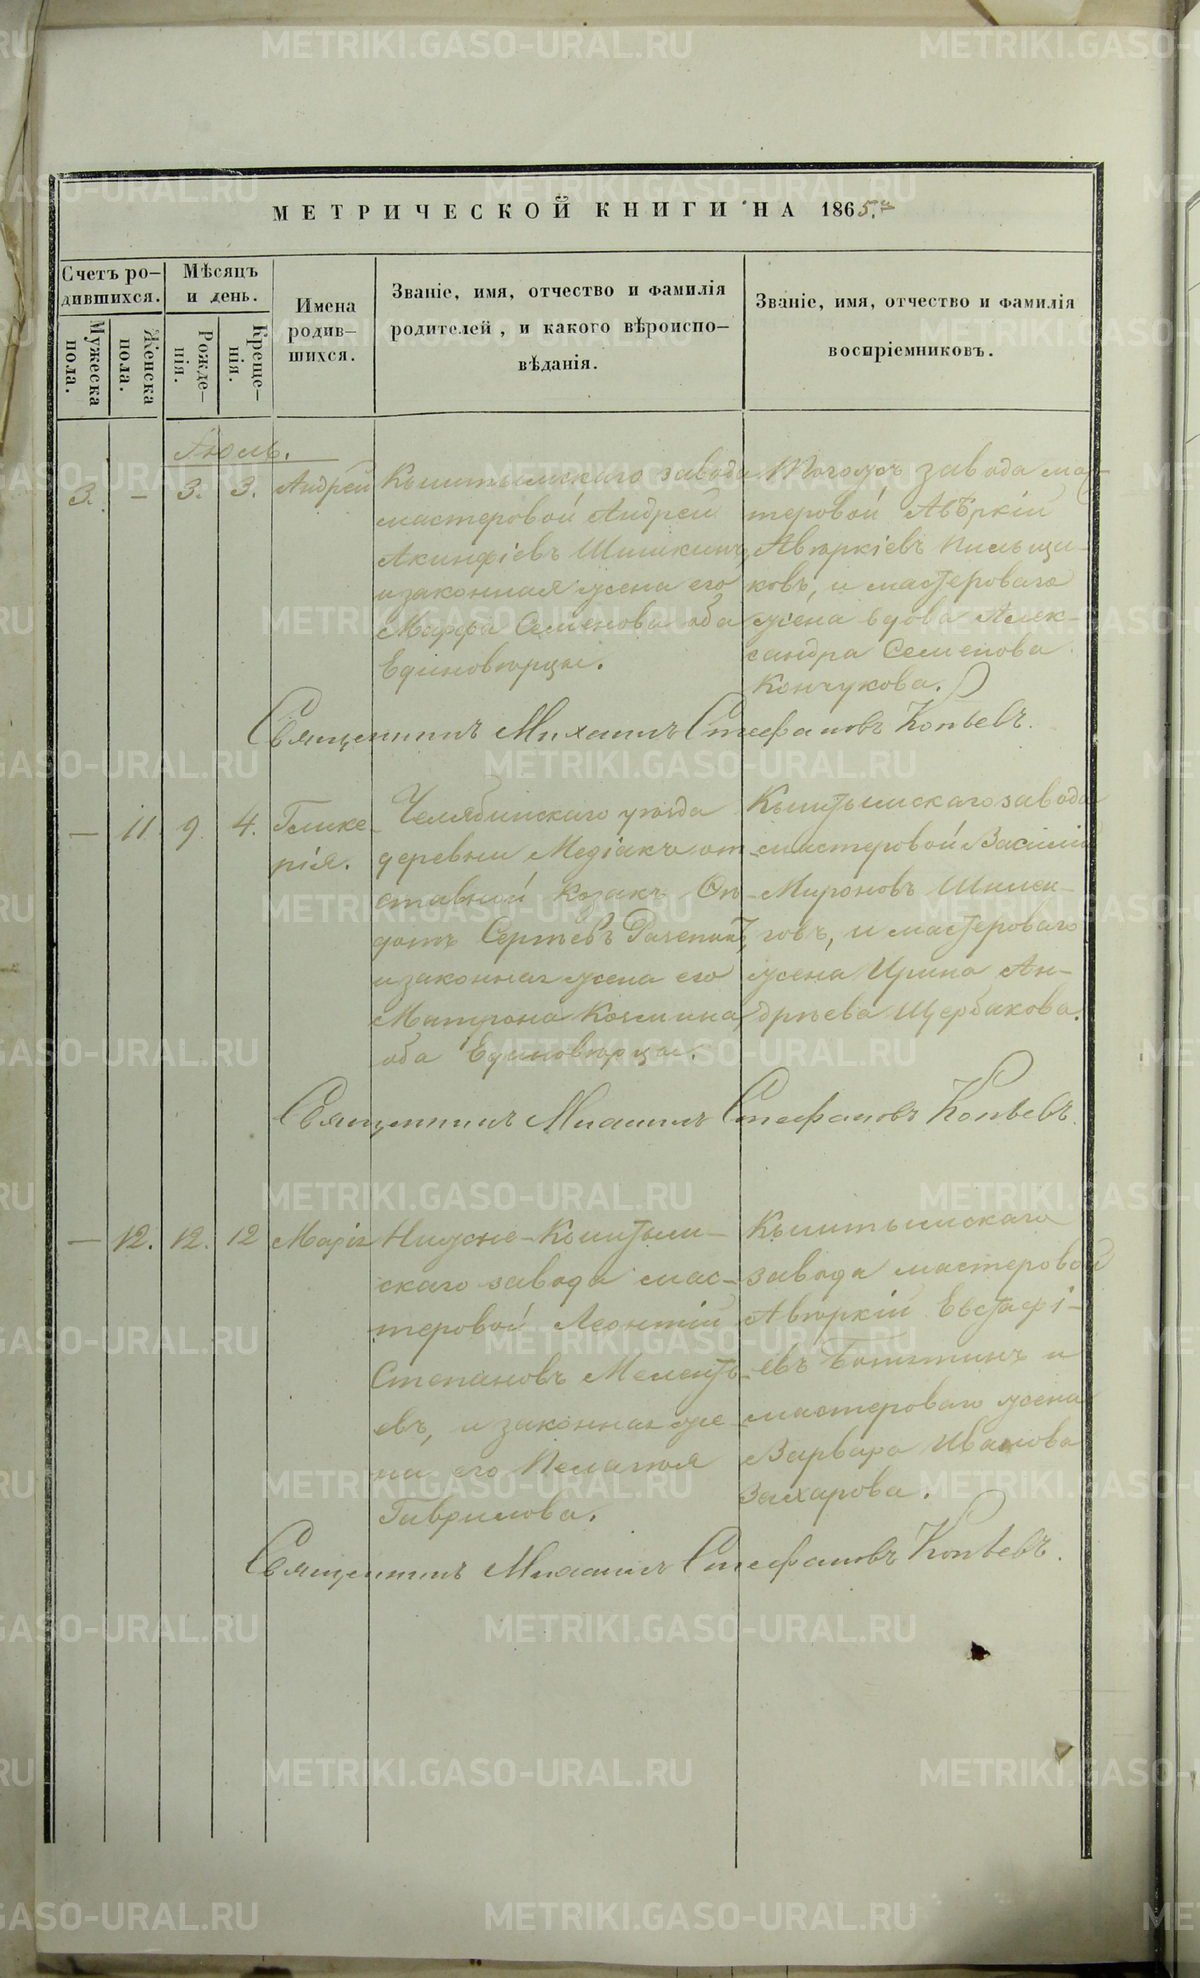 МЕТРИЧЕСКОЙ КНИГИ НА 1865.й
Счетъ ро-
дившихся.
Мужеска
пола.
Женска
пола.
Мѣсяцъ
и день.
Рожде-
нія.
Креще-
нія.
Имена
родив-
шихся.
Званіе, имя, отчество и фамилія
родителей, и какого вѣроиспо-
вѣданія.
Званіе, имя, отчество и фамилія
воспріемниковъ.
Іюль.
3. - 3. 3. Андрей
Кыштымскаго завода
мастеровой Андрей
Акинфіевъ Шишкинъ,
и законная жена его
Марфа Семенова оба
Единовѣрцы.
Тогожъ завода мас-
теровой Авѣркій
Авѣркіевъ Пильщи-
ковъ, и мастероваго
жена вдова Алек-
сандра Семенова
Кончукова.
Священникъ Михаилъ Стефановъ Копьевъ.
- 11 9. 4. Глике-
рія.
Челябинскаго уѣзда
деревни Медіакъ от-
ставной козакъ
Сергѣевъ
и законная жена его
Матрона
оба Единовѣрцы.
Кыштымскаго завода
мастеровой Василій
Мироновъ
и мастероваго
жена Ирина Ан-
дрѣева Щербакова.
Священникъ Михаилъ Стефановъ Копьевъ.
- 12. 12. 12 Марія
Нижне-Кыштым-
скаго завода мас-
теровой Леонтій
Степановъ Меленть-
евъ, и законная же-
на его Пелагѣя
Гаврилова.
Кыштымскаго
завода мастеровой
Авѣркій Евстафі-
евъ и
мастероваго жена
Варвара Иванова
Захарова.
Священникъ Михаилъ Стефановъ Копьевъ.
METRIKI.GASO-URAL.RU